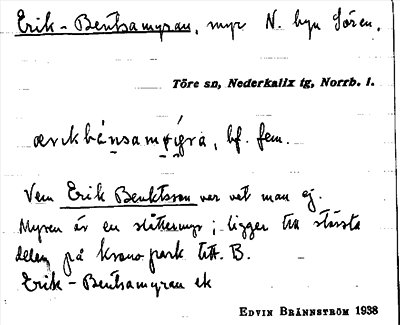 Erik-Bentsamyran, myr N. byn Sören.
Töre sn, Nederkalix tg, Norrb. l.
bf. fem.
Vem Erik Benktsson var vet man ej.
Myren är en slåttesmyr; ligger till största
delen på kronopark litt. B.
Erik-Bentsamyran ek
EDVIN BRÄNNSTRÖM 1938